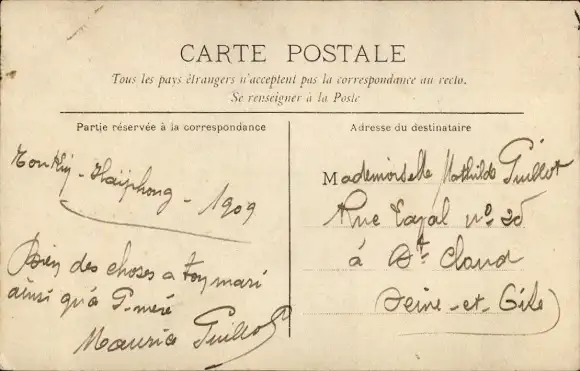 CARTE POSTALE
Tous les pays étrangers n'acceptent pas la correspondance au recto.
Se renseigner à la Poste
Partie réservée à la correspondance
Tonkin - Haïphong - 1909
Bien des choses a ton mari
ainsi qu'à G-mère
Maurice Guillot
Adresse du destinataire
Mademoiselle Mathilde Guillot
Rue no 25
à St Cloud
Seine-et-Oise